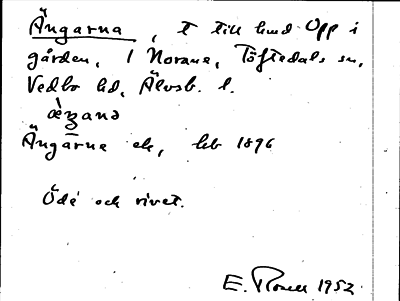 Ängarna, t till hmd Opp i
gården, 1 Norane, Töftedals sn,
Vedbo hd, Älvsb. l.
Ängarne ek, hb 1896
Öde och rivet.
E. 1952